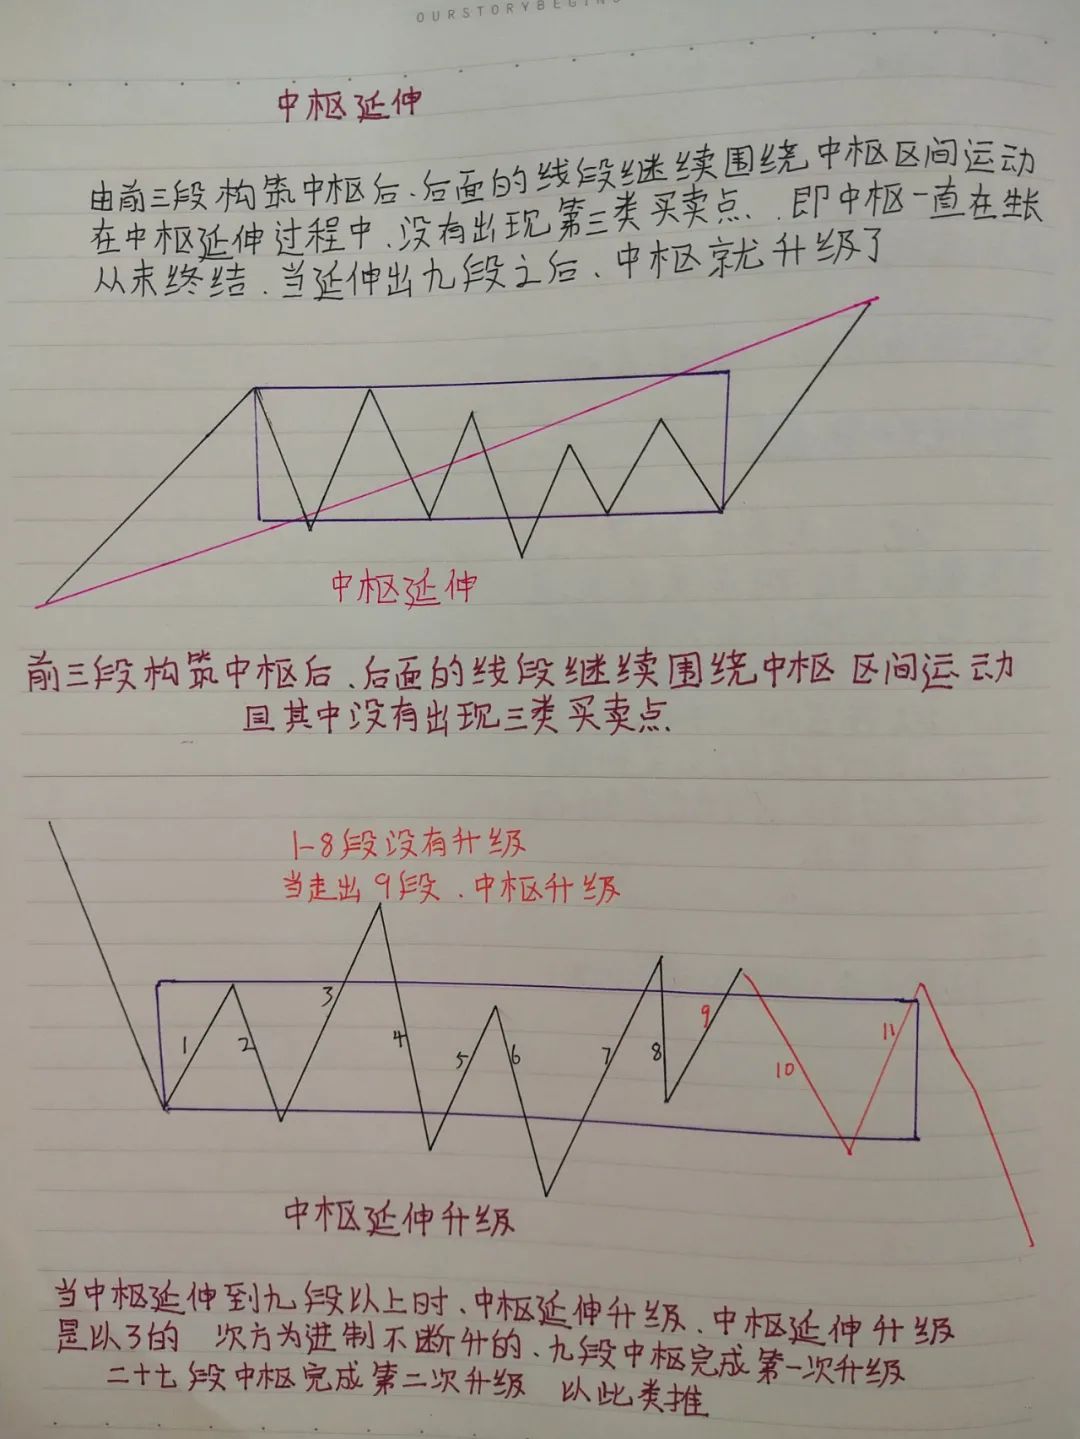 OURSTORYBEGINS
中枢延伸
由前三段构筑中枢后、后面的线段继续围绕中枢区间运动
在中枢延伸过程中、没有出现第三类买卖点、即中枢一直在生长
从未终结、当延伸出九段之后、中枢就升级了
中枢延伸
前三段构筑中枢后、后面的线段继续围绕中枢区间运动
且其中没有出现三类买卖点
1-8段没有升级
当走出9段、中枢升级
1
2
3
4
5
6
7
8
9
10
11
中枢延伸升级
当中枢延伸到九段以上时、中枢延伸升级、中枢延伸升级
是以3的 次方为进制不断升的、九段中枢完成第一次升级
二十七段中枢完成第二次升级 以此类推